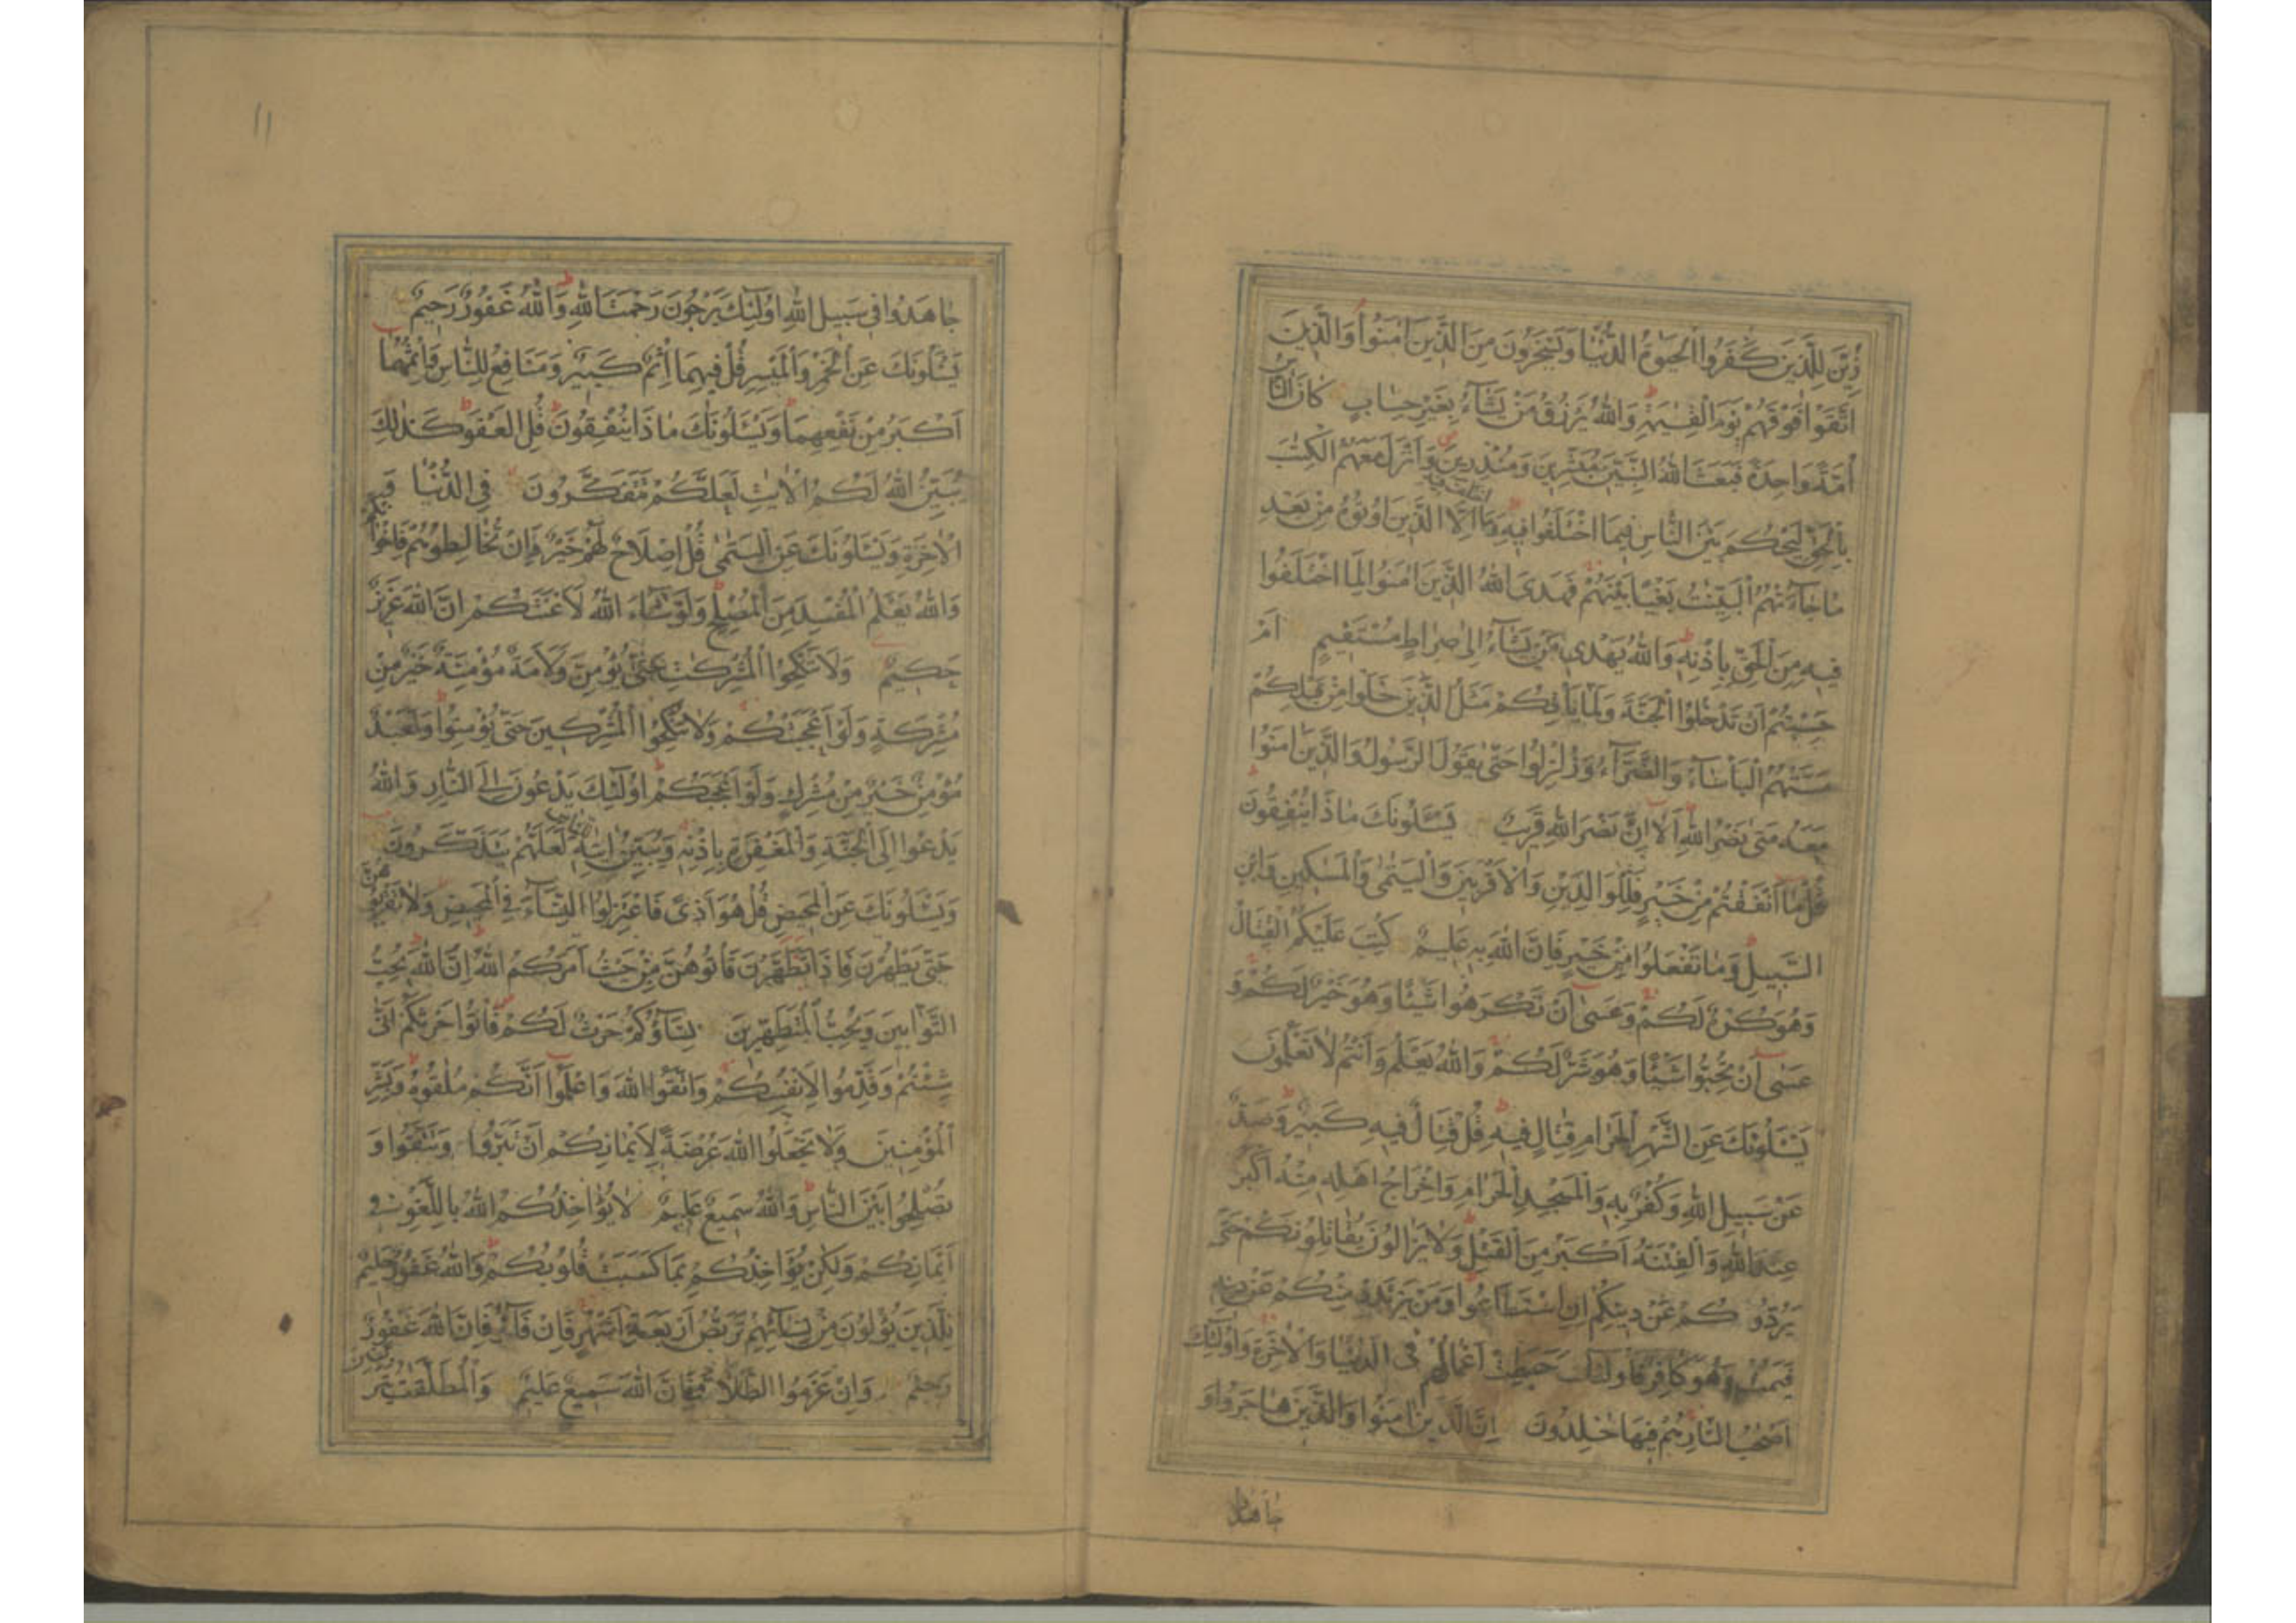 زُيِّنَ لِلَّذِينَ كَفَرُوا الْحَيٰوةُ الدُّنْيَا وَيَسْخَرُونَ مِنَ الَّذِينَ اٰمَنُوا وَالَّذِينَ
اتَّقَوْا فَوْقَهُمْ يَوْمَ الْقِيٰمَةِ وَاللّٰهُ يَرْزُقُ مَنْ يَشَآءُ بِغَيْرِ حِسَابٍ كَانَ النَّاسُ
اُمَّةً وَاحِدَةً فَبَعَثَ اللّٰهُ النَّبِيّٖنَ مُبَشِّرِينَ وَمُنْذِرِينَ وَاَنْزَلَ مَعَهُمُ الْكِتٰبَ
بِالْحَقِّ لِيَحْكُمَ بَيْنَ النَّاسِ فِيمَا اخْتَلَفُوا فِيهِ وَمَا اخْتَلَفَ فِيهِ اِلَّا الَّذِينَ اُوتُوهُ مِنْ بَعْدِ
مَا جَآءَتْهُمُ الْبَيِّنٰتُ بَغْيًا بَيْنَهُمْ فَهَدَى اللّٰهُ الَّذِينَ اٰمَنُوا لِمَا اخْتَلَفُوا
فِيهِ مِنَ الْحَقِّ بِاِذْنِهٖ وَاللّٰهُ يَهْدِى مَنْ يَشَآءُ اِلٰى صِرَاطٍ مُسْتَقِيمٍ اَمْ
حَسِبْتُمْ اَنْ تَدْخُلُوا الْجَنَّةَ وَلَمَّا يَاْتِكُمْ مَثَلُ الَّذِينَ خَلَوْا مِنْ قَبْلِكُمْ
مَسَّتْهُمُ الْبَاْسَآءُ وَالضَّرَّآءُ وَزُلْزِلُوا حَتّٰى يَقُولَ الرَّسُولُ وَالَّذِينَ اٰمَنُوا
مَعَهُ مَتٰى نَصْرُ اللّٰهِ اَلَا اِنَّ نَصْرَ اللّٰهِ قَرِيبٌ يَسْـَٔلُونَكَ مَاذَا يُنْفِقُونَ
قُلْ مَا اَنْفَقْتُمْ مِنْ خَيْرٍ فَلِلْوَالِدَيْنِ وَالْاَقْرَبِينَ وَالْيَتٰمٰى وَالْمَسٰكِينِ وَابْنِ
السَّبِيلِ وَمَا تَفْعَلُوا مِنْ خَيْرٍ فَاِنَّ اللّٰهَ بِهٖ عَلِيمٌ كُتِبَ عَلَيْكُمُ الْقِتَالُ
وَهُوَ كُرْهٌ لَكُمْ وَعَسٰى اَنْ تَكْرَهُوا شَيْـًٔا وَهُوَ خَيْرٌ لَكُمْ وَ
عَسٰى اَنْ تُحِبُّوا شَيْـًٔا وَهُوَ شَرٌّ لَكُمْ وَاللّٰهُ يَعْلَمُ وَاَنْتُمْ لَا تَعْلَمُونَ
يَسْـَٔلُونَكَ عَنِ الشَّهْرِ الْحَرَامِ قِتَالٍ فِيهِ قُلْ قِتَالٌ فِيهِ كَبِيرٌ وَصَدٌّ
عَنْ سَبِيلِ اللّٰهِ وَكُفْرٌ بِهٖ وَالْمَسْجِدِ الْحَرَامِ وَاِخْرَاجُ اَهْلِهٖ مِنْهُ اَكْبَرُ
عِنْدَ اللّٰهِ وَالْفِتْنَةُ اَكْبَرُ مِنَ الْقَتْلِ وَلَا يَزَالُونَ يُقَاتِلُونَكُمْ حَتّٰى
يَرُدُّوكُمْ عَنْ دِينِكُمْ اِنِ اسْتَطَاعُوا وَمَنْ يَرْتَدِدْ مِنْكُمْ عَنْ دِينِهٖ
فَيَمُتْ وَهُوَ كَافِرٌ فَاُولٰٓئِكَ حَبِطَتْ اَعْمَالُهُمْ فِى الدُّنْيَا وَالْاٰخِرَةِ وَاُولٰٓئِكَ
اَصْحٰبُ النَّارِ هُمْ فِيهَا خٰلِدُونَ اِنَّ الَّذِينَ اٰمَنُوا وَالَّذِينَ هَاجَرُوا وَ
جاهدوا
١١
جَاهَدُوا فِى سَبِيلِ اللّٰهِ اُولٰٓئِكَ يَرْجُونَ رَحْمَتَ اللّٰهِ وَاللّٰهُ غَفُورٌ رَحِيمٌ
يَسْـَٔلُونَكَ عَنِ الْخَمْرِ وَالْمَيْسِرِ قُلْ فِيهِمَا اِثْمٌ كَبِيرٌ وَمَنَافِعُ لِلنَّاسِ وَاِثْمُهُمَا
اَكْبَرُ مِنْ نَفْعِهِمَا وَيَسْـَٔلُونَكَ مَاذَا يُنْفِقُونَ قُلِ الْعَفْوَ كَذٰلِكَ
يُبَيِّنُ اللّٰهُ لَكُمُ الْاٰيٰتِ لَعَلَّكُمْ تَتَفَكَّرُونَ فِى الدُّنْيَا وَ
الْاٰخِرَةِ وَيَسْـَٔلُونَكَ عَنِ الْيَتٰمٰى قُلْ اِصْلَاحٌ لَهُمْ خَيْرٌ وَاِنْ تُخَالِطُوهُمْ فَاِخْوَانُكُمْ
وَاللّٰهُ يَعْلَمُ الْمُفْسِدَ مِنَ الْمُصْلِحِ وَلَوْ شَآءَ اللّٰهُ لَاَعْنَتَكُمْ اِنَّ اللّٰهَ عَزِيزٌ
حَكِيمٌ وَلَا تَنْكِحُوا الْمُشْرِكٰتِ حَتّٰى يُؤْمِنَّ وَلَاَمَةٌ مُؤْمِنَةٌ خَيْرٌ مِنْ
مُشْرِكَةٍ وَلَوْ اَعْجَبَتْكُمْ وَلَا تُنْكِحُوا الْمُشْرِكِينَ حَتّٰى يُؤْمِنُوا وَلَعَبْدٌ
مُؤْمِنٌ خَيْرٌ مِنْ مُشْرِكٍ وَلَوْ اَعْجَبَكُمْ اُولٰٓئِكَ يَدْعُونَ اِلَى النَّارِ وَاللّٰهُ
يَدْعُوا اِلَى الْجَنَّةِ وَالْمَغْفِرَةِ بِاِذْنِهٖ وَيُبَيِّنُ اٰيٰتِهٖ لِلنَّاسِ لَعَلَّهُمْ يَتَذَكَّرُونَ
وَيَسْـَٔلُونَكَ عَنِ الْمَحِيضِ قُلْ هُوَ اَذًى فَاعْتَزِلُوا النِّسَآءَ فِى الْمَحِيضِ وَلَا تَقْرَبُوهُنَّ
حَتّٰى يَطْهُرْنَ فَاِذَا تَطَهَّرْنَ فَاْتُوهُنَّ مِنْ حَيْثُ اَمَرَكُمُ اللّٰهُ اِنَّ اللّٰهَ يُحِبُّ
التَّوَّابِينَ وَيُحِبُّ الْمُتَطَهِّرِينَ نِسَآؤُكُمْ حَرْثٌ لَكُمْ فَاْتُوا حَرْثَكُمْ اَنّٰى
شِئْتُمْ وَقَدِّمُوا لِاَنْفُسِكُمْ وَاتَّقُوا اللّٰهَ وَاعْلَمُوا اَنَّكُمْ مُلٰقُوهُ وَبَشِّرِ
الْمُؤْمِنِينَ وَلَا تَجْعَلُوا اللّٰهَ عُرْضَةً لِاَيْمَانِكُمْ اَنْ تَبَرُّوا وَتَتَّقُوا وَ
تُصْلِحُوا بَيْنَ النَّاسِ وَاللّٰهُ سَمِيعٌ عَلِيمٌ لَا يُؤَاخِذُكُمُ اللّٰهُ بِاللَّغْوِ فِى
اَيْمَانِكُمْ وَلٰكِنْ يُؤَاخِذُكُمْ بِمَا كَسَبَتْ قُلُوبُكُمْ وَاللّٰهُ غَفُورٌ حَلِيمٌ
لِلَّذِينَ يُؤْلُونَ مِنْ نِسَآئِهِمْ تَرَبُّصُ اَرْبَعَةِ اَشْهُرٍ فَاِنْ فَآءُو فَاِنَّ اللّٰهَ غَفُورٌ
رَحِيمٌ وَاِنْ عَزَمُوا الطَّلَاقَ فَاِنَّ اللّٰهَ سَمِيعٌ عَلِيمٌ وَالْمُطَلَّقٰتُ يَتَرَبَّصْنَ